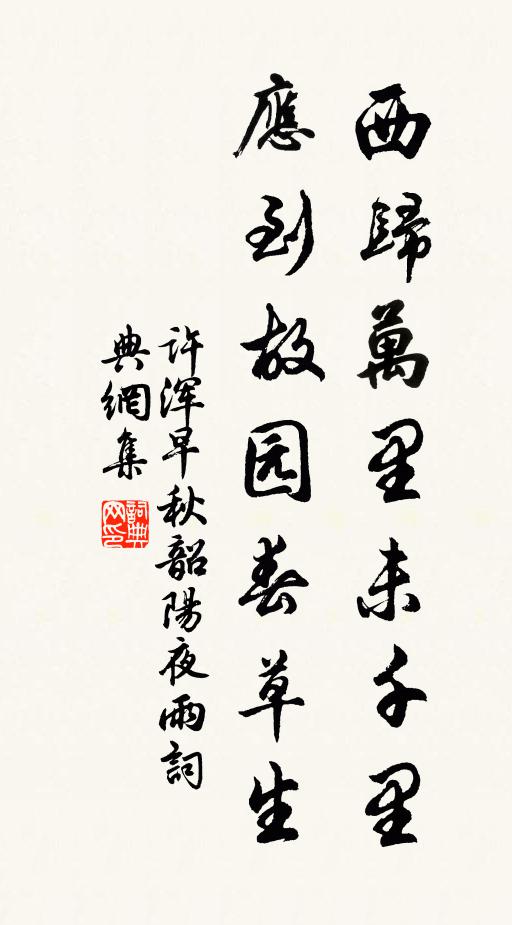 西歸萬里未千里
應到故园春草生
許渾早秋韶陽夜雨詞
典網集
詞典
网印